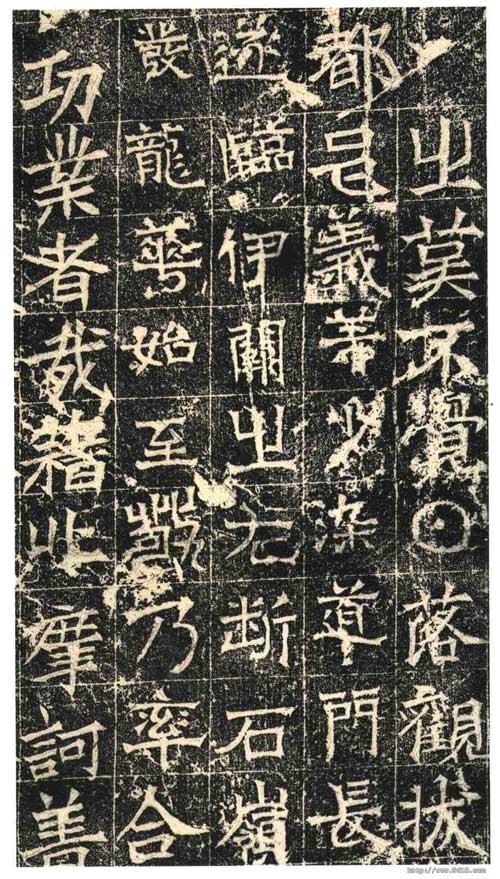 之莫不覺日落觀拔
都邑義等染道門長
臨伊闕之右斷石嶺
發龍華始至乃率合
功業者哉藉此摩訶善
http://www.9610.com